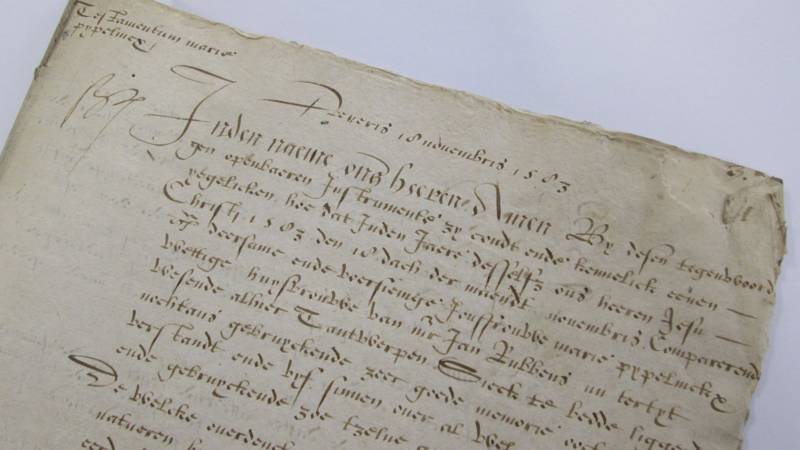 Testamentum marie
pypelincx
Veneris 18 novembris 1583
Inden naeme ons heeren Amen By desen tegenwoord
gen openbaeren Instrumente zy condt ende kennelick eenen
yegelicken hoe dat Inden Jaere desselfs ons heeren Jesu
Christi 1583 den 18 dach der maendt novembris Comparerende
deersame ende voersienige Jouffrouwe marie pypelincx
wettige huysvrouwe van mr Jan Rubbens nu tertyt
wesende alhier Tantwerpen Sieck te bedde liggende
nochtans gebruyckende zeer goede memorie
verstandt ende vyf sinnen over al wel
ende gebruyckende zoe tzelve
De welcke overdenck
natueren